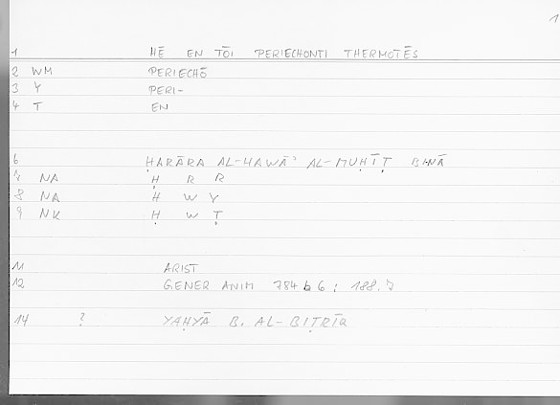 1
1 HĒ EN TŌI PERIECHONTI THERMOTĒS
2 WM PERIECHŌ
3 Y PERI-
4 T EN
6 ḤARĀRA AL-HAWĀʾ AL-MUḤĪṬ BINĀ
7 NA Ḥ R R
8 NA H W Y
9 NK Ḥ W Ṭ
11 ARIST
12 GENER ANIM 784 b 6 : 188.7
14 ? YAḤYĀ B. AL-BIṬRĪQ